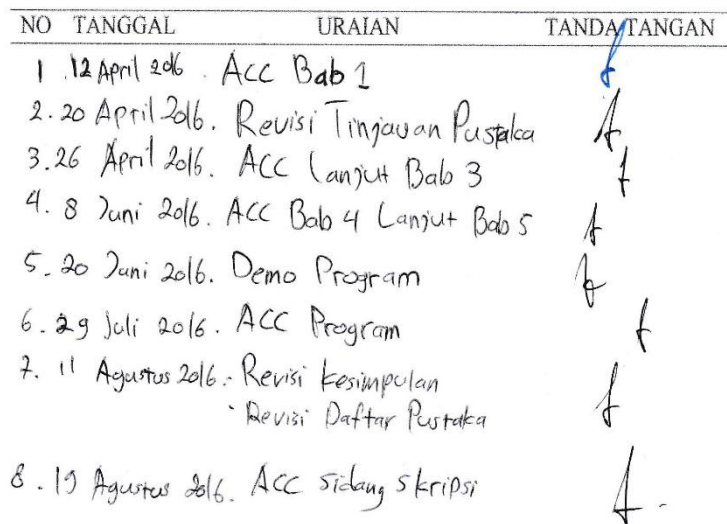 NO TANGGAL URAIAN TANDA TANGAN
1. 12 April 2016. ACC Bab 1
2. 20 April 2016. Revisi Tinjauan Pustaka
3. 26 April 2016. ACC Lanjut Bab 3
4. 8 Juni 2016. ACC Bab 4 Lanjut Bab 5
5. 20 Juni 2016. Demo Program
6. 29 Juli 2016. ACC Program
7. 11 Agustus 2016. - Revisi Kesimpulan
- Revisi Daftar Pustaka
8. 19 Agustus 2016. ACC Sidang Skripsi